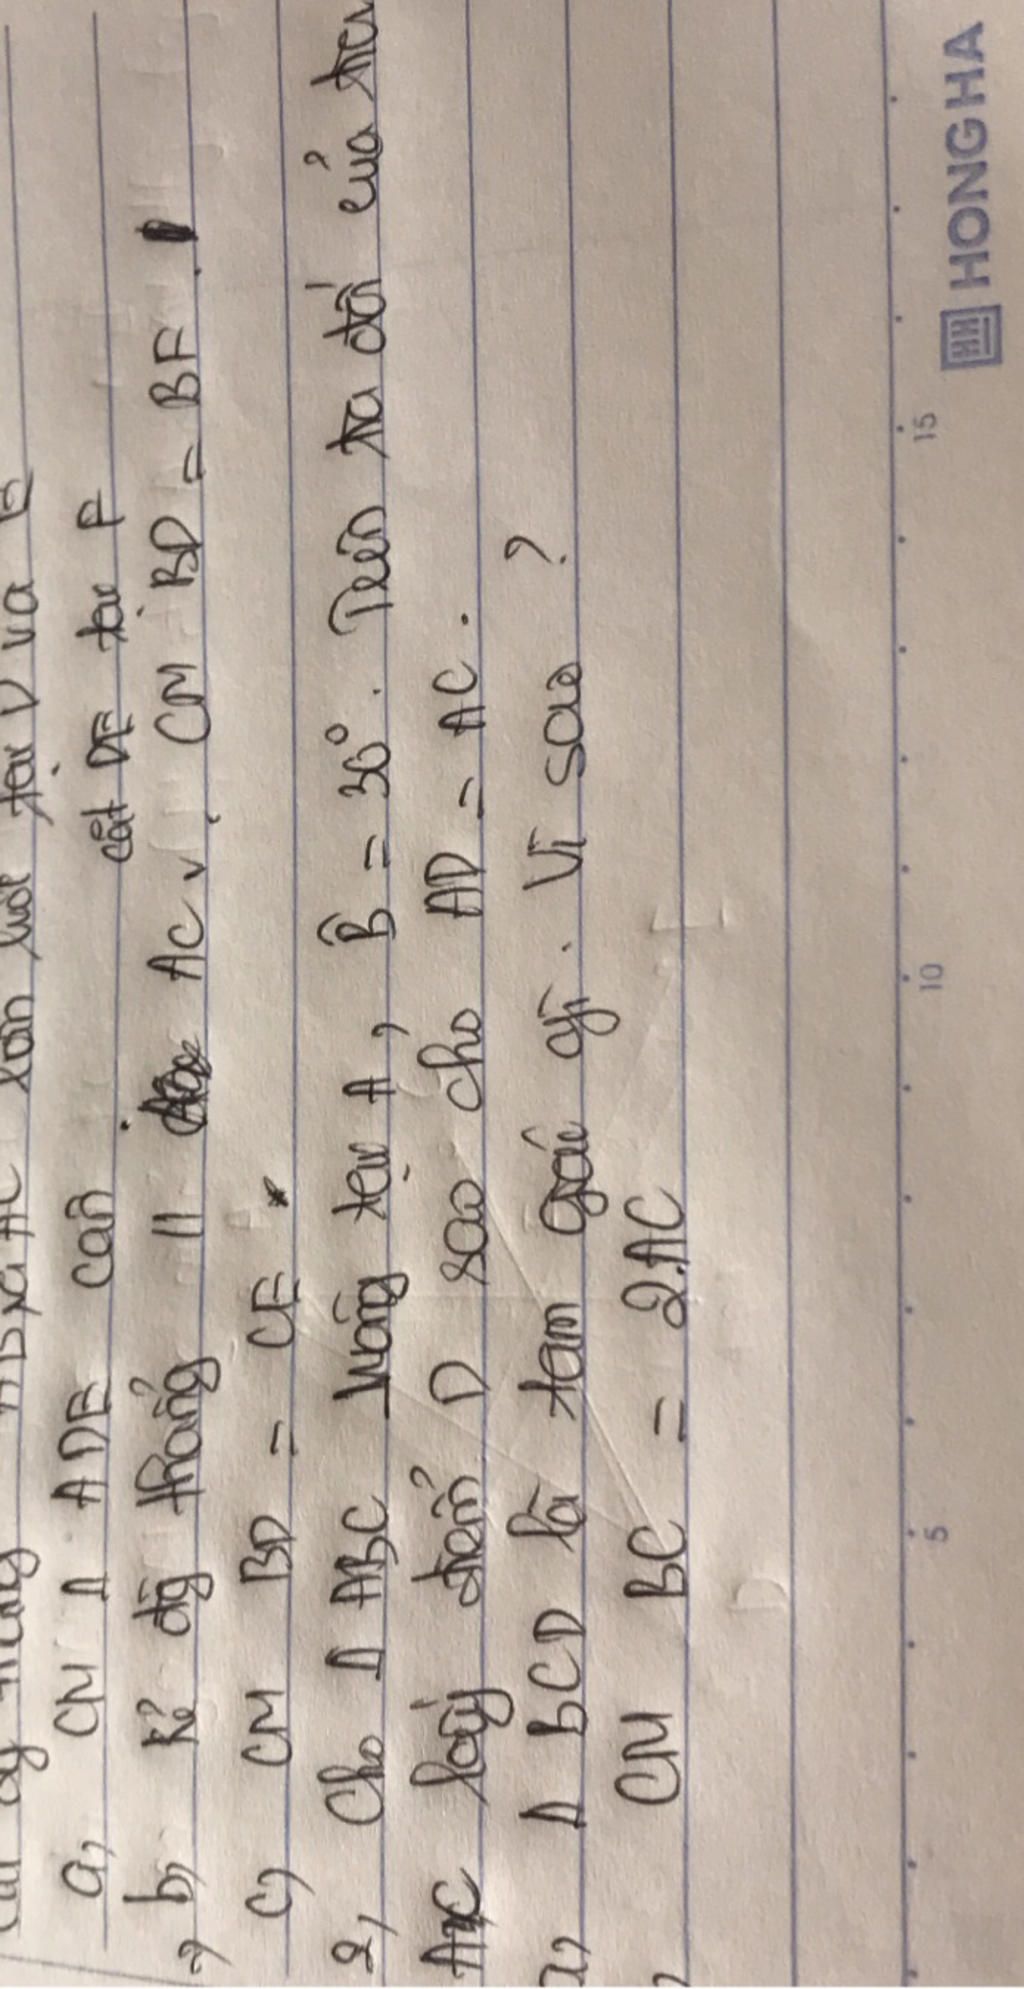 tại D và E
a, CM Δ ADE cân
cắt DE tại F
b, Kẻ đg thẳng // AC, CM BD = BF.
c, CM BD = CE.
2, Cho Δ ABC vuông tại A, B̂ = 30°. Trên tia đối của tia
AC lấy điểm D sao cho AD = AC.
Δ BCD là tam giác gì. Vì sao ?
CM BC = 2.AC
5 10 15
HONG HA